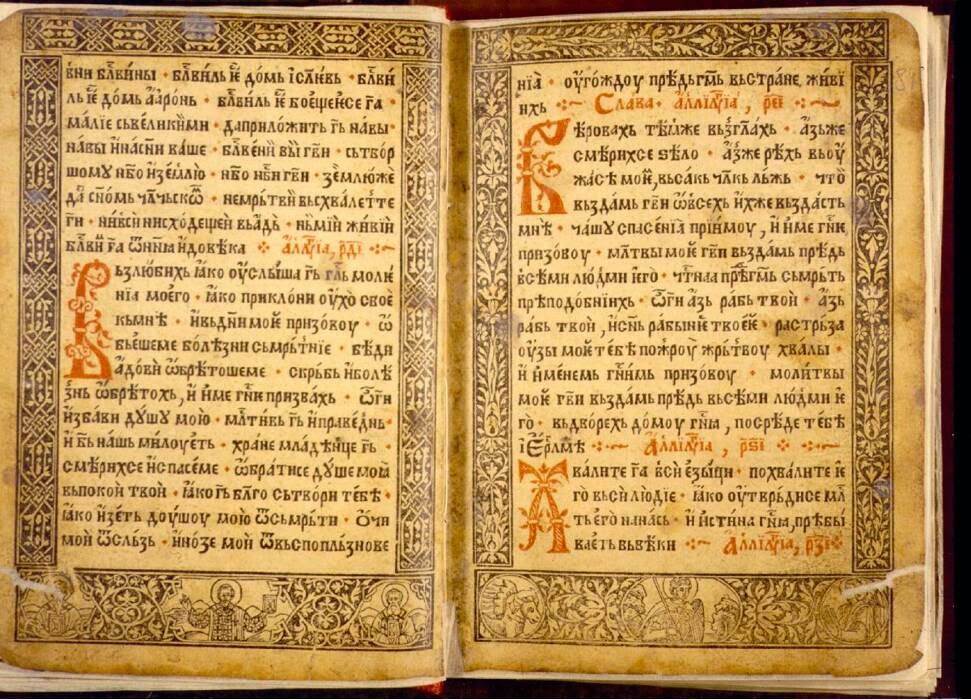 вни бл҃вины · бл҃виль є҆ до́мь і҆сл҃ивь · бл҃ви
ль є҆ до́мь а҆аро́нь · бл҃виль є҆ боѥщеи҆се г҃а ·
ма́лїе сьвели́кіими · даприло́жить г҃ь на́вы ·
на́вы и҆ на́сн҃и ва́ше · бл҃ве́ни вы̀ гв҃и · сьтво́р
шому нб҃о и҆зе́млю · нб҃о нб҃и гв҃и · зе́млюже
да̀ сн҃о́мь чл҃чьскѡ · немрь́тви вьсхва́лет те
г҃и · нивсѝ нисхо́дещеи вьа́дь · нь мі́и жи́віи
бл҃ви́м г҃а ѿни́нꙗ и҆дове́ка ⁘ а҆ллу҆іа, р҃ді ⁘
Вьзлю́бихь ꙗ҆ко ѹ҆слы́ша г҃ь гл҃ь моли́
нїа моѥго · ꙗ҆ко приклони ѹ҆́хо своѐ
кь мнѣ̀ · и҆вьдн҃и мое҆́ призо́вѹ · ѡ
бьѥ́шеме бо́лѣзни сьмрь́тнїе · бѣ́ди
а҆́дови ѡ҆брѣ́тошеме · скрь́бь и҆болѣ́
знь ѡ҆брѣ́тохь, и҆ и҆́ме гн҃ѥ призва́хь · ѽ г҃и
и҆зба́ви дꙋ́шꙋ мою̀ · мл҃тивь г҃ь и҆пра́ведьнь ·
и҆ б҃ь на́шь ми́лѹѥть · хра́не младѣ́нце г҃ь ·
смѣри́хсе и҆спасе́ме · ѡ҆брати́се дꙋ́ше моꙗ̀
вьпоко́и тво́и · ꙗ҆́ко г҃ь бл҃го сьтво́ри те́бѣ ·
ꙗ҆́ко и҆зе́ть дѹ́шѹ мою̀ ѿсьмрь́ти · ѻ҆́чи
мои́ ѿсль́зь · и҆но́зе мои́ ѿвьспопль́знове
нїꙗ · ѹ҆го́ждѹ прѣ́дьг҃мь вьстра́не, жи́ві
ихь ⁘ Сла́ва · а҆лли́лꙋіа, р҃еі ⁘
Вѣ́ровахь тѣ́мже вьзгла́хь · а҆́зьже
смѣри́хсе ѕѣ́ло · а҆́зже рѣ́хь вьѹ҆́
жа́сѣ мое҆́м, вьса́кь чл҃кь ль́жь · что̀
вьзда́мь гв҃и ѡ҆всехь и҆́хже вьзда́сть
мнѣ̀ · ча́шꙋ спасе́нїа прїи́мѹ, и҆ и҆́ме гн҃ѥ,
призо́вѹ · мл҃твы мое҆́ гв҃и вьзда́мь прѣ́дь
всѣми лю́дми ѥ҆го̀ · чт҃на прѣ́г҃мь сьмрь́ть
прѣпод́обнїихь · ѽ г҃и а҆зь ра́бь тво́и · а҆́зь
ра́бь тво́и, и҆сн҃ь рабы́нѥ твоѥ҆́ѥ · растрь́за
ѹ҆́зы моѥ҆ те́бѣ пожрѹ̀ жрь́твѹ хвалы̀ ·
и҆ и҆́менемь гн҃имь призо́вѹ · моли́твы
мое҆́ гв҃и вьзда́мь прѣдь вьсѣми лю́дми ѥ҆
го̀ · вьдво́рехь до́мѹ гн҃ꙗ, посре́де те́бѣ
і҆ѥрл҃ме ⁘ А҆лли́лꙋіа, р҃ѕі ⁘
Хва́лите г҃а вси́ ѥ҆зы́ци · похвали́те ѥ҆
го̀ вьсѝ лю́діе · ꙗ҆́ко ѹ҆тврь́дисе мл҃
ть ѥго на на́сь · и҆ и҆́стина гн҃ꙗ, прѣ́бы
ваѥть вьве́ки ⁘ А҆лли́лꙋіа, р҃зі ⁘